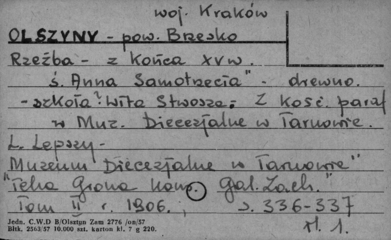 woj. Kraków
OLSZYNY - pow. Brzesko
Rzeźba - z końca XV w.
ś. Anna Samotrzecia" - drewno.
- szkoła? Wita Stwosza; Z kość. paraf
w Muz. Diecezjalne w Tarnowie.
L. Lepszy -
Muzeum Diecezjalne w Tarnowie"
"Teka Grona Kons. Gal. Zach."
Tom II r. 1906. s. 336-337
il. 1.
Jedn. C.W.D B/Olsztyn Zam 2776 /on/57
Bltk. 2562/57 10.000 szt. karton kl. 7 g 220.